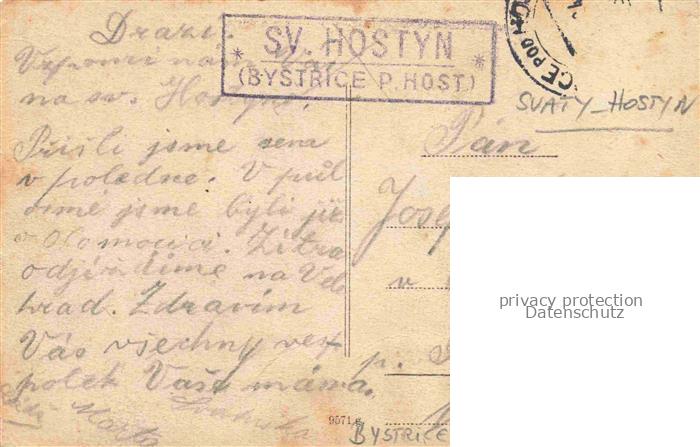 Drazí.
* SV. HOSTYN *
(BYSTRICE P. HOST.)
CE POD HO
SVATY-HOSTYN
na sv. Hostýně.
Přišli jsme sem
v poledne. V půl
osmé jsme byli již
v Olomouci. Zítra
odjíždíme na Vele
hrad. Zdravím
Vás všechny ves-
polek Vaše máma.
Marta
Pán
Josef
v
p.
privacy protection
Datenschutz
9571
BYSTRICE